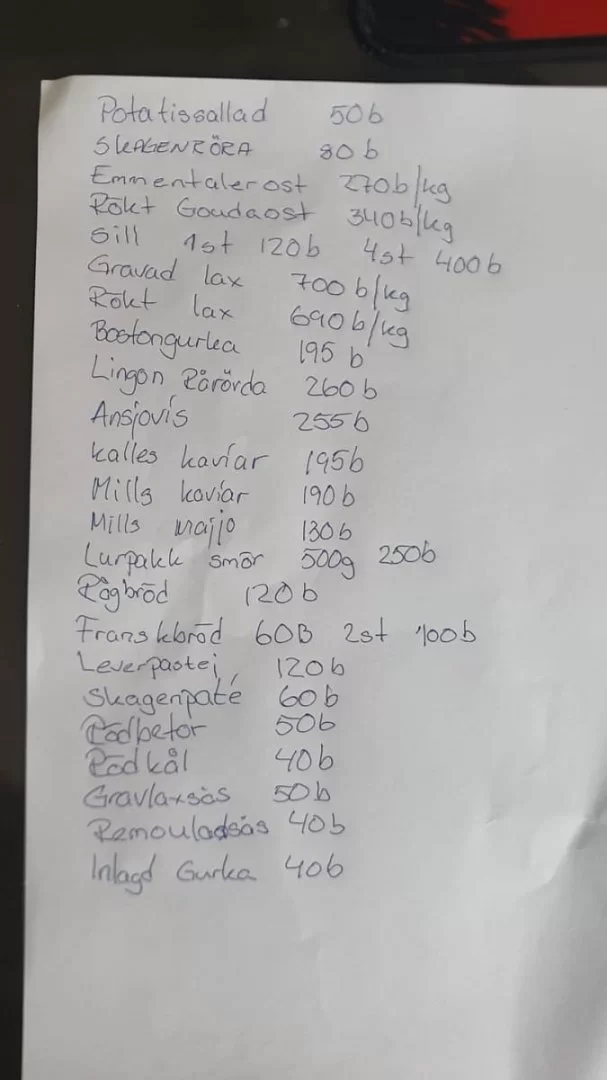 Potatissallad 50b
SKAGENRÖRA 80b
Emmentalerost 270b/kg
Rökt Goudaost 340b/kg
Sill 1st 120b 4st 400b
Gravad lax 700b/kg
Rökt lax 690b/kg
Bostongurka 195b
Lingon Rårörda 260b
Ansjovis 255b
Kalles kaviar 195b
Mills kaviar 190b
Mills majjo 130b
Lurpakk smör 500g 250b
Rågbröd 120b
Franskbröd 60B 2st 100b
Leverpastej 120b
Skagenpaté 60b
Rödbetor 50b
Rödkål 40b
Gravlaxsås 50b
Remouladsås 40b
Inlagd Gurka 40b